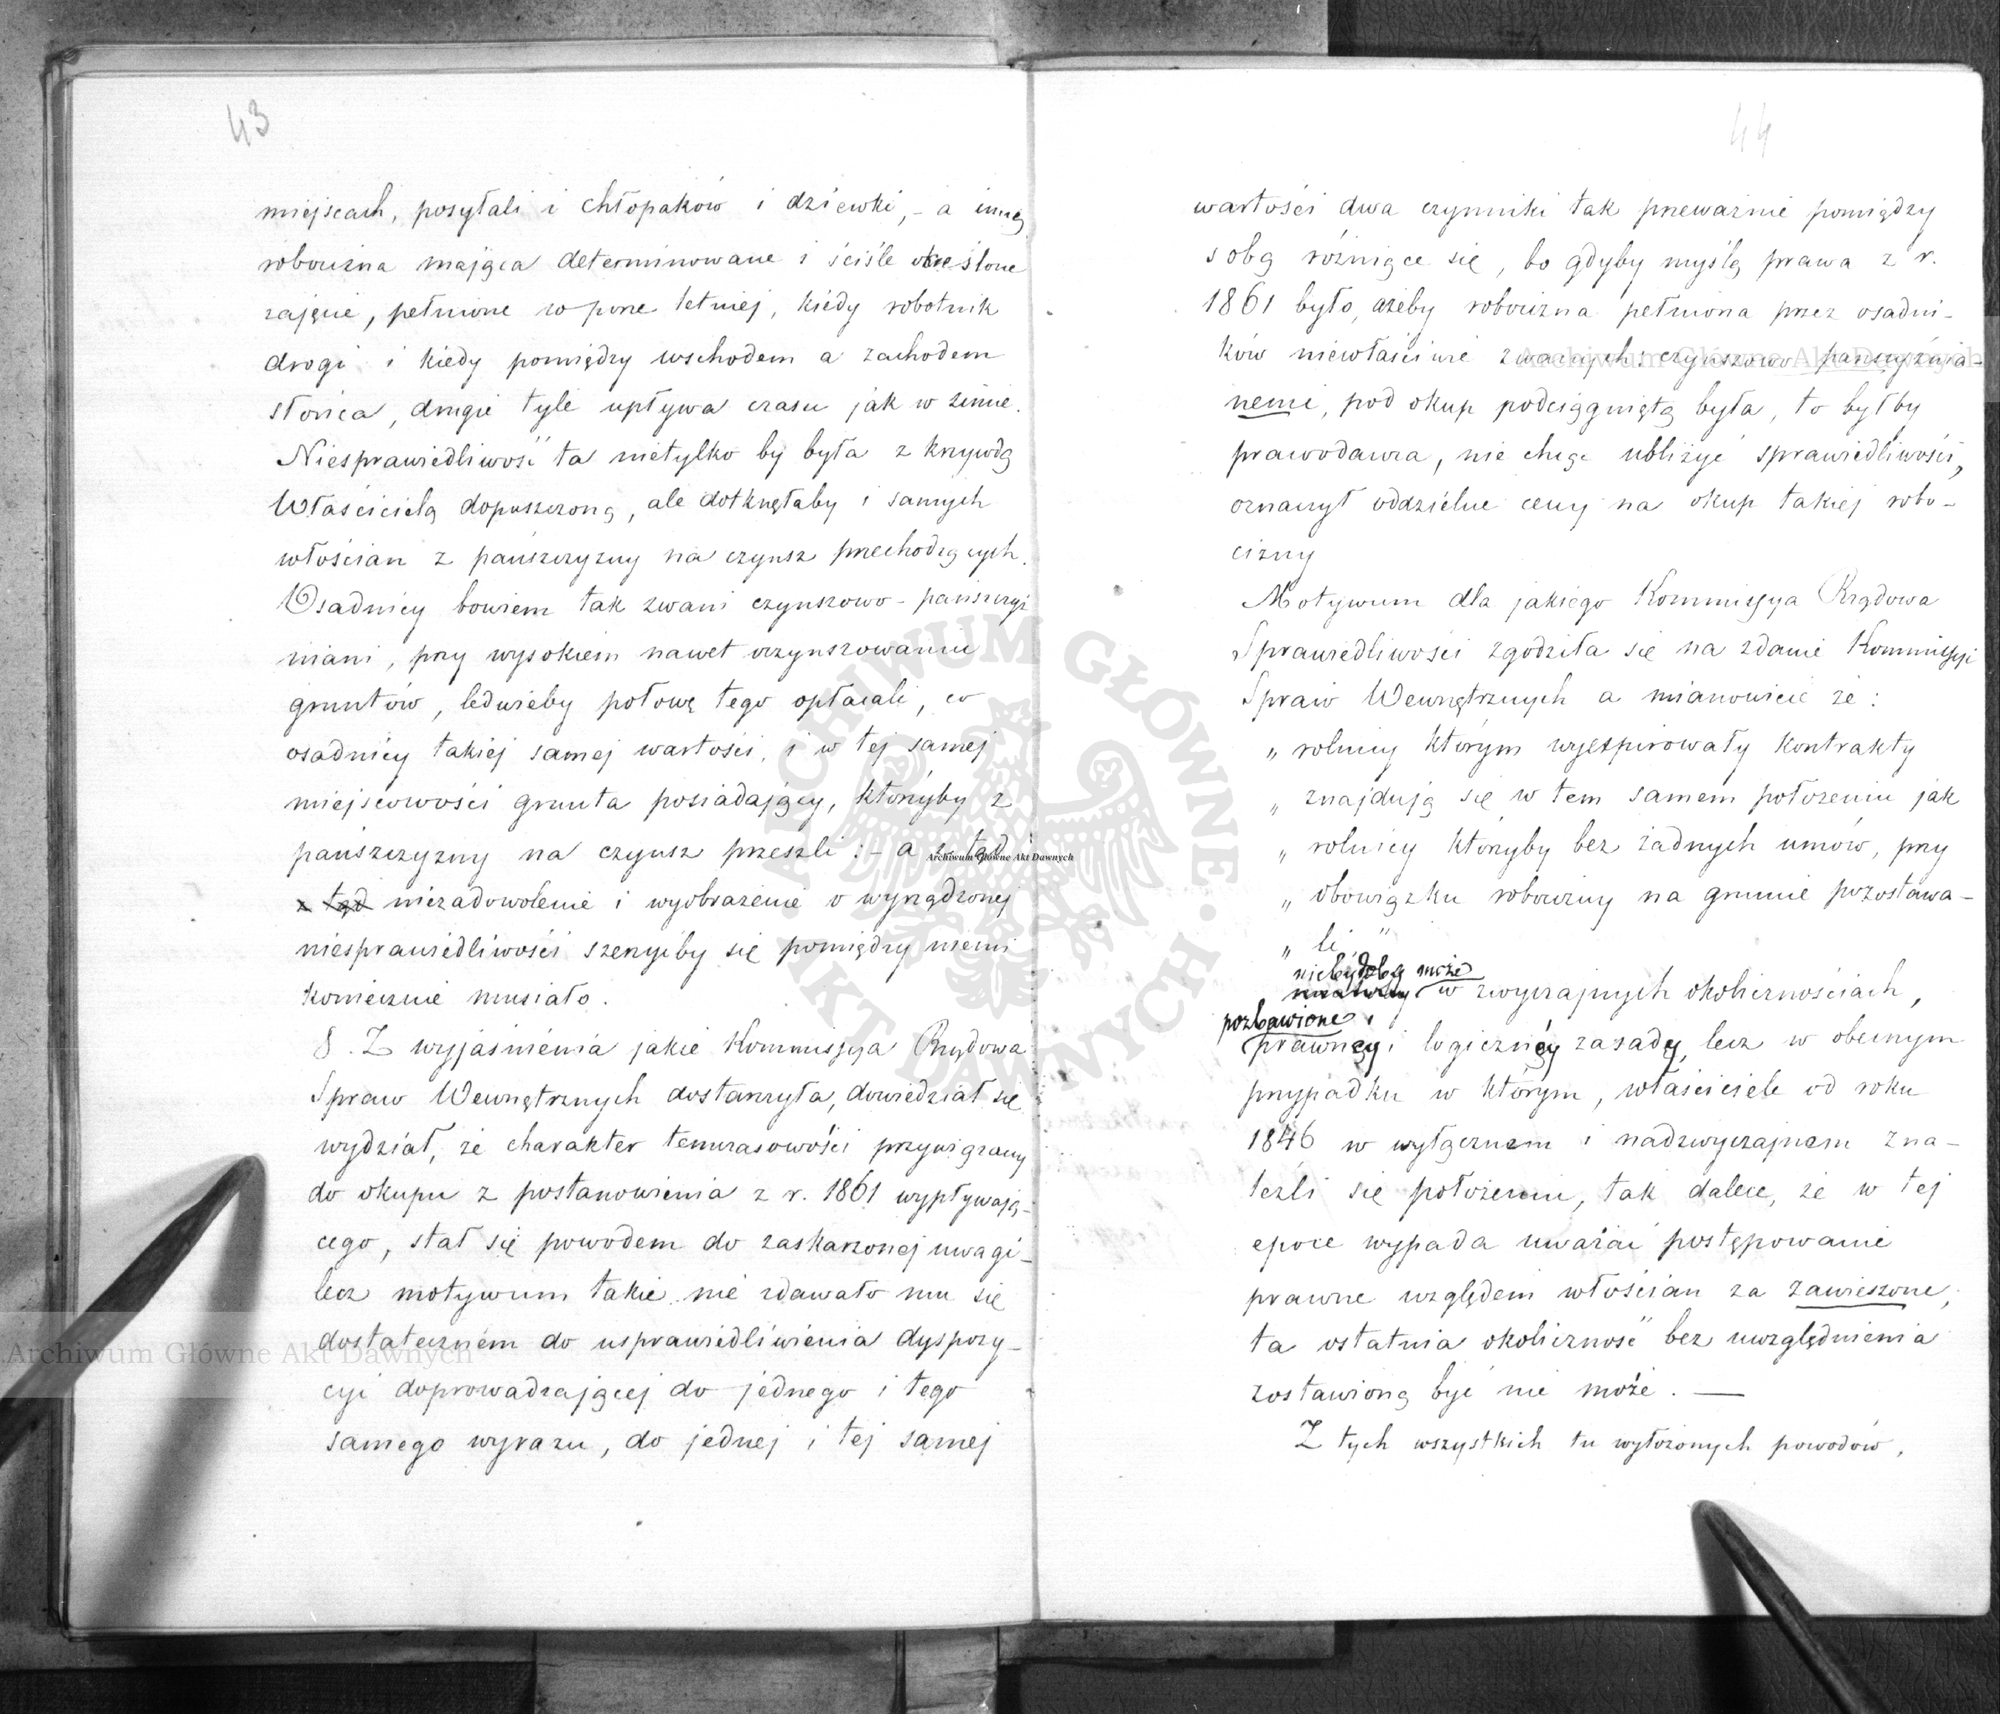 43
miejscach, posyłali i chłopaków i dziewki, - a inną
robocizna mająca determinowane i ściśle określone
zajęcie, pełnione w porze letniej, kiedy robotnik
drogi i kiedy pomiędzy wschodem a zachodem
słońca, drugie tyle upływa czasu jak w zimie.
Niesprawiedliwość ta nietylko by była z krzywdą
Właściciela dopuszczoną, ale dotknęłaby i samych
włościan z pańszczyzny na czynsz przechodzących.
Osadnicy bowiem tak zwani czynszowo-pańszczyź
niani, przy wysokiem nawet oczynszowaniu
gruntów, ledwieby połowę tego opłacali, co
osadnicy takiej samej wartości, i w tej samej
miejscowości grunta posiadający, którzyby z
pańszczyzny na czynsz przeszli: - a z tąd
z tąd niezadowolenie i wyobrażenie o wyrządzonej
niesprawiedliwości szerzyćby się pomiędzy niemi
koniecznie musiało.
8. Z wyjaśnienia jakie Kommissya Rządowa
Spraw Wewnętrznych dostarczyła, dowiedział się
wydział, że charakter temczasowości przywiązany
do okupu z postanowienia z r. 1861 wypływają-
cego, stał się powodem do zaskarżonej uwagi-
lecz motywum takie nie zdawało mu się
dostatecznem do usprawiedliwienia dyspozy-
cyi doprowadzającej do jednego i tego
samego wyrazu, do jednej i tej samej
44
wartości dwa czynniki tak przeważnie pomiędzy
sobą różniące się, bo gdyby myślą prawa z r.
1861 było, ażeby robocizna pełniona przez osadni-
ków niewłaściwie zwanych: czynszowo pańszczyźnia-
nemi, pod okup podciągniętą była, to byłby
prawodawca, nie chcąc ubliżyć sprawiedliwości,
oznaczył oddzielne ceny na okup takiej robo-
cizny
Motywum dla jakiego Kommissya Rządowa
Sprawiedliwości zgodziła się na zdanie Kommissyi
Spraw Wewnętrznych a mianowicie że:
„ rolnicy którym wyexpirowały kontrakty
„ znajdują się w tem samem położeniu jak
„ rolnicy którzyby bez żadnych umów, przy
„ obowiązku robocizny na gruncie pozostawa-
„ li "
niebyłoby może
w zwyczajnych okolicznościach,
pozbawione
prawnej i logicznéj zasady, lecz w obecnym
przypadku w którym, właściciele od roku
1846 w wyłącznem i nadzwyczajnem zna-
leźli się położeniu, tak dalece, że w tej
epoce wypada uważać postępowanie
prawne względem włościan za zawieszone,
ta ostatnia okoliczność bez uwzględnienia
zostawioną być nie może. —
Z tych wszystkich tu wyłożonych powodów,
Archiwum Główne Akt Dawnych
Archiwum Główne Akt Dawnych
Archiwum Główne Akt Dawnych
ARCHIWUM GŁÓWNE · AKT DAWNYCH ·